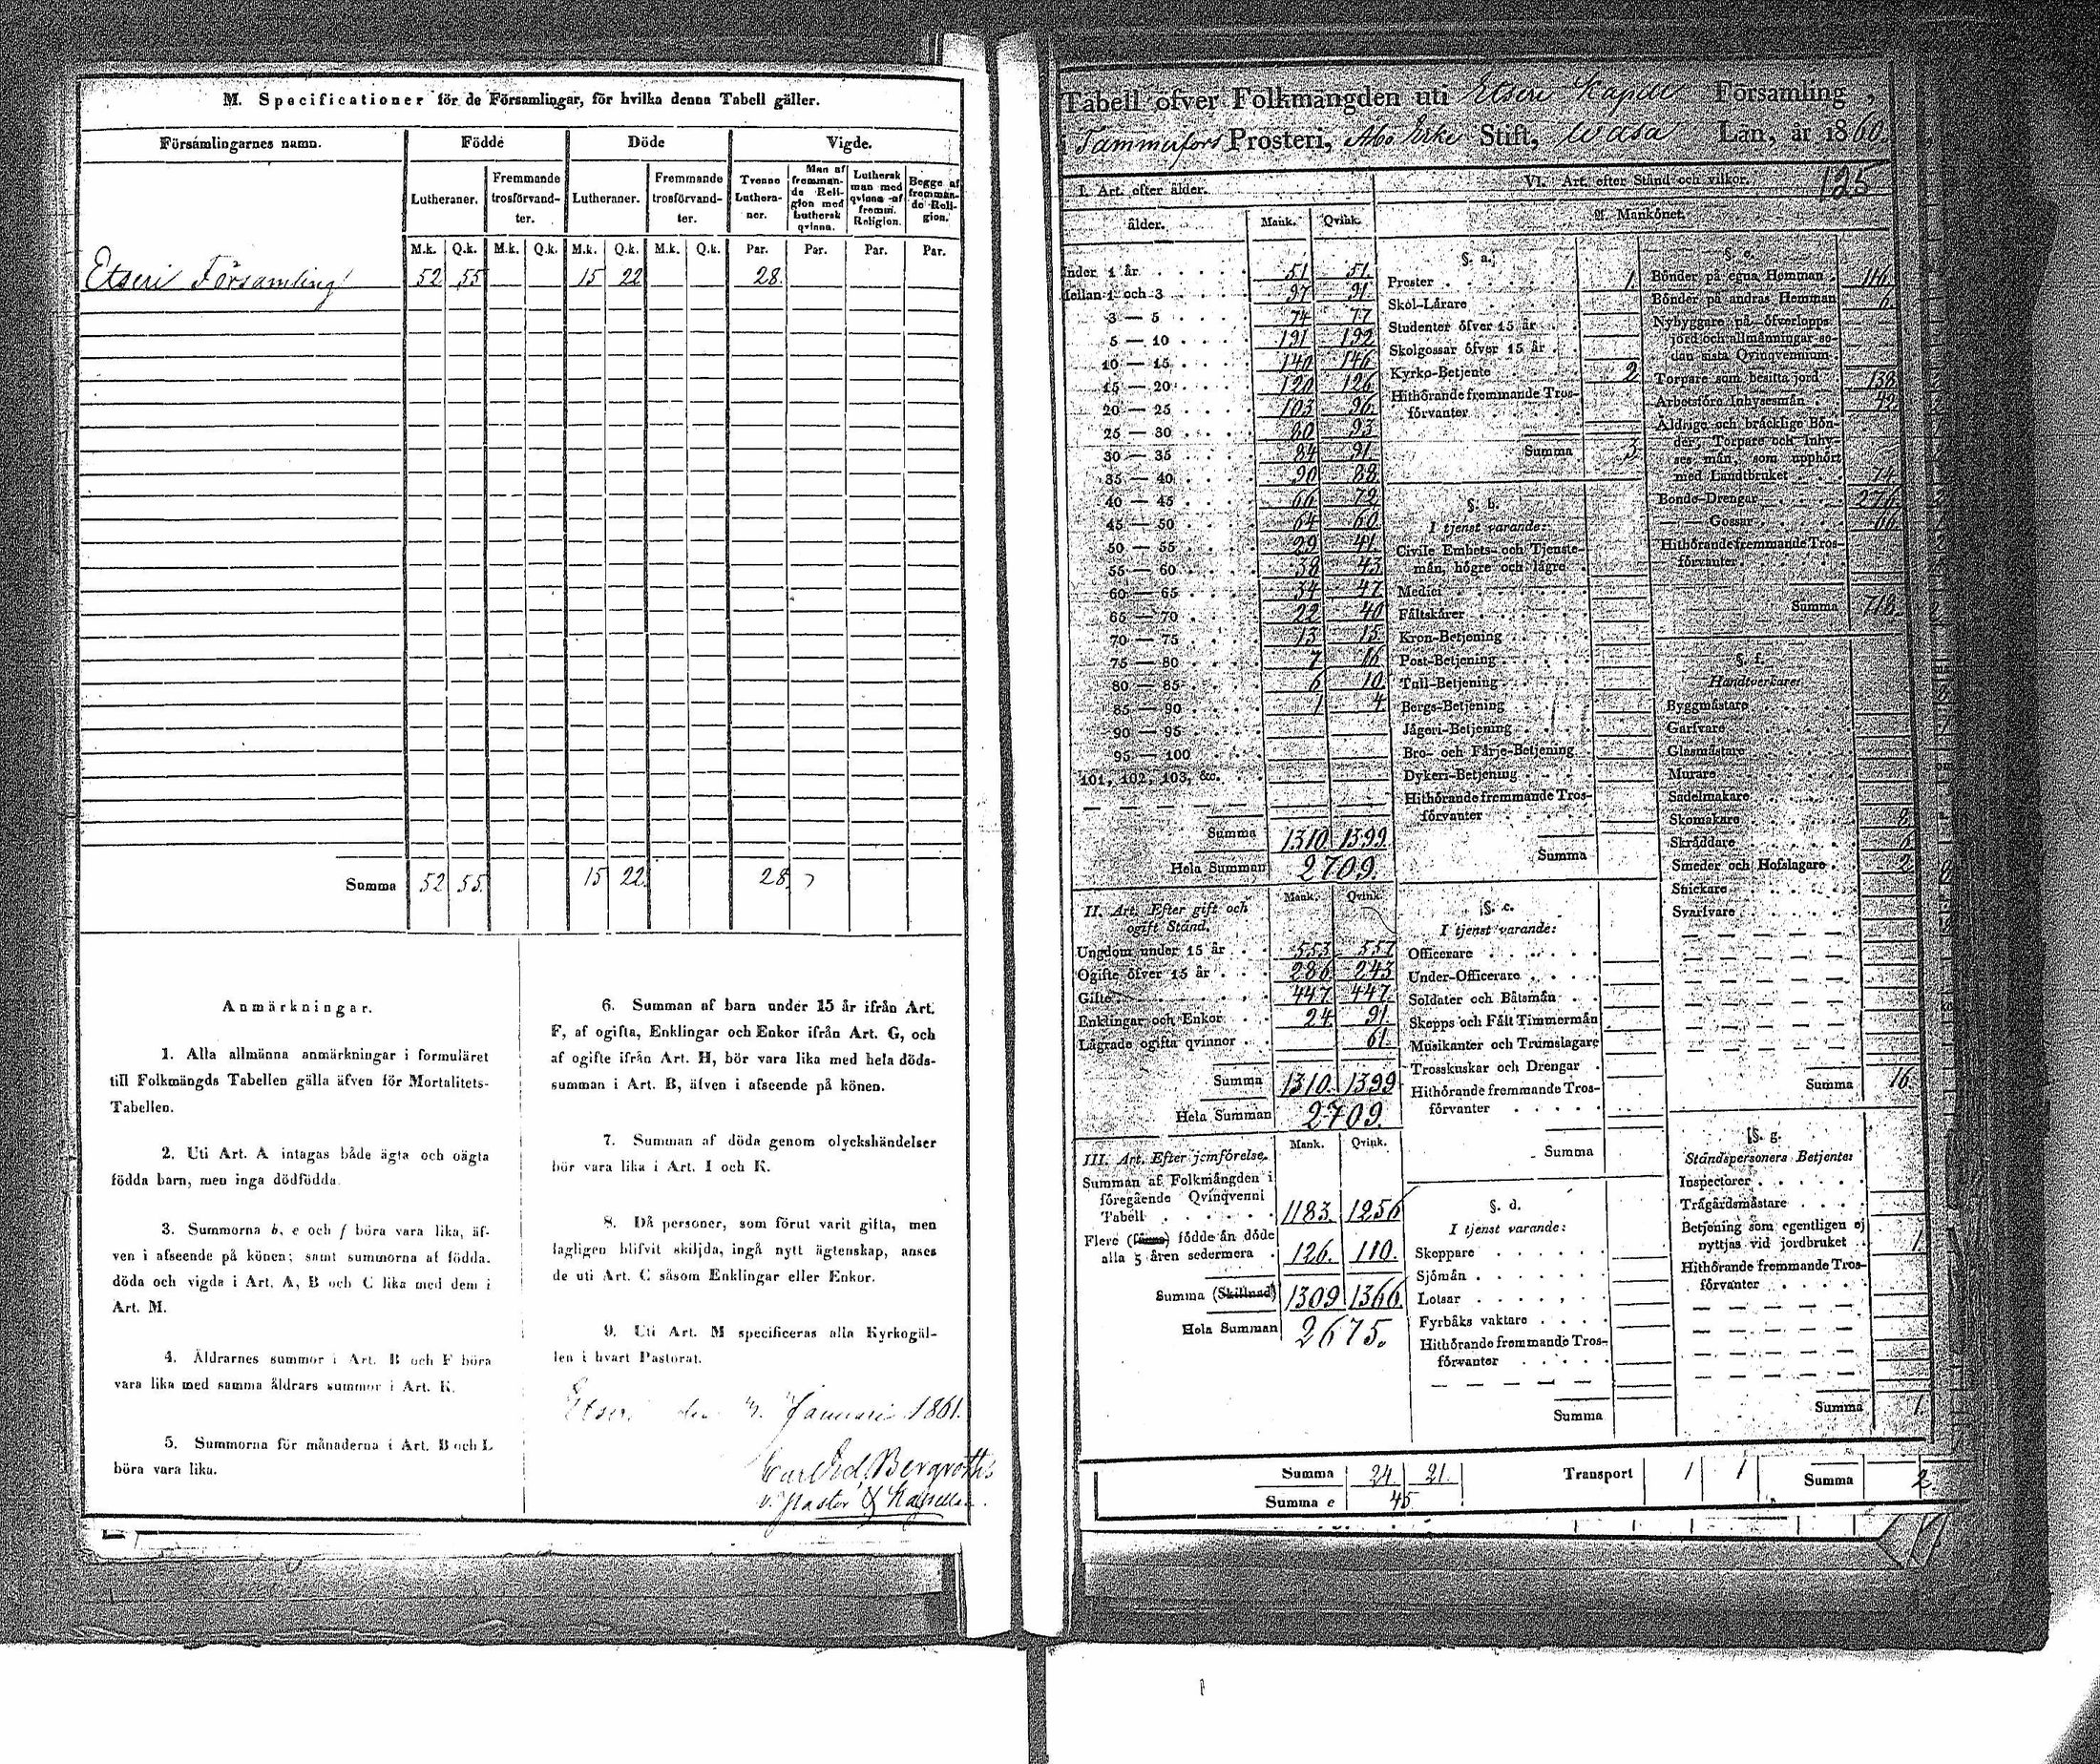 M. Specificationer för de Församlingar, för hvilka denna Tabell gäller.
Församlingarnes namn. Födde Döde Vigde.
Lutheraner. Fremmande trosförvandter. Lutheraner. Fremmande trosförvandter. Tvenne Lutheraner. Man af fremmande Religion med Luthersk qvinna. Luthersk man med qvinna af fremm. Religion. Begge af fremmande Religion.
M.k. Q.k. M.k. Q.k. M.k. Q.k. M.k. Q.k. Par. Par. Par. Par.
Etseri Församling 52 55 15 22 28.
Summa 52 55. 15 22. 28.
Anmärkningar.
1. Alla allmänna anmärkningar i formuläret
till Folkmängds Tabellen gälla äfven för Mortalitets-
Tabellen.
2. Uti Art. A intagas både ägta och oägta
födda barn, men inga dödfödda.
3. Summorna b, e och f böra vara lika, äf-
ven i afseende på könen; samt summorna af födda.
döda och vigda i Art. A, B och C lika med dem i
Art. M.
4. Åldrarnes summor i Art. B och F böra
vara lika med samma åldrars summor i Art. K.
5. Summorna för månaderna i Art. B och L
böra vara lika.
6. Summan af barn under 15 år ifrån Art.
F, af ogifta, Enklingar och Enkor ifrån Art. G, och
af ogifte ifrån Art. H, bör vara lika med hela döds-
summan i Art. B, äfven i afseende på könen.
7. Summan af döda genom olyckshändelser
bör vara lika i Art. I och K.
8. Då personer, som förut varit gifta, men
lagligen blifvit skiljda, ingå nytt ägtenskap, anses
de uti Art. C såsom Enklingar eller Enkor.
9. Uti Art. M specificeras alla Kyrkogäl-
len i hvart Pastorat.
Etseri den 3. Januari 1861.
Carl Ed. Bergroth
v. Pastor & Kapellan.
Tabell öfver Folkmängden uti Etseri Kapell Församling,
i Tammerfors Prosteri, Åbo Erke Stift, Wasa Län, år 1860.
125
I. Art. efter ålder.
ålder. Mank. Qvink.
Under 1 år 51 51.
Mellan 1 och 3 97 91.
3 — 5 74 77
5 — 10 191 192
10 — 15 140 146
15 — 20 120 126
20 — 25 103 96
25 — 30 80 93
30 — 35 84 91
35 — 40 90 88
40 — 45 66 72
45 — 50 64 60
50 — 55 29 41.
55 — 60 38 43
60 — 65 34 47
65 — 70 22 40
70 — 75 13 15
75 — 80 7 16
80 — 85 6 10
85 — 90 1 4
90 — 95
95 — 100
101, 102, 103, &c.
Summa 1310 1399
Hela Summan 2709.
II. Art. Efter gift och
ogift Stånd.
Mank. Qvink.
Ungdom under 15 år 553 557
Ogifte öfver 15 år 286 243
Gifte 447 447.
Enklingar och Enkor 24 91
Lägrade ogifta qvinnor 61.
Summa 1310. 1399
Hela Summan 2709.
III. Art. Efter jemförelse. Mank. Qvink.
Summan af Folkmängden i
föregående Qvinqvenni
Tabell 1183. 1256
Flere (färre) födde än döde
alla 5 åren sedermera 126. 110.
Summa (Skillnad) 1309 1366.
Hela Summan 2675.
VI. Art. efter Stånd och vilkor.
A. Mankönet.
§. a.
Prester 1.
Skol-Lärare
Studenter öfver 15 år
Skolgossar öfver 15 år
Kyrko-Betjente 2
Hithörande fremmande Tros-
förvanter
Summa 3
§. b.
I tjenst varande:
Civile Embets- och Tjenste-
män, högre och lägre
Medici
Fältskärer
Kron-Betjening
Post-Betjening
Tull-Betjening
Bergs-Betjening
Jägeri-Betjening
Bro- och Färje-Betjening
Dykeri-Betjening
Hithörande fremmande Tros-
förvanter
Summa
§. c.
I tjenst varande:
Officerare
Under-Officerare
Soldater och Båtsmän
Skepps och Fält Timmermän
Musikanter och Trumslagare
Trosskuskar och Drengar
Hithörande fremmande Tros-
förvanter
Summa
§. d.
I tjenst varande:
Skeppare
Sjömän
Lotsar
Fyrbåks vaktare
Hithörande fremmande Tros-
förvanter
Summa
§. e.
Bönder på egna Hemman 116.
Bönder på andras Hemman 6.
Nybyggare på öfverlopps
jord och allmänningar se-
dan sista Qvinqvennium
Torpare som besitta jord 138
Arbetsföre Inhysesmän 42
Åldrige och bräcklige Bön-
der, Torpare och Inhy-
ses män, som upphört
med Landtbruket 74.
Bonde-Drengar 276.
— Gossar 66.
Hithörande fremmande Tros-
förvanter
Summa 718.
§. f.
Handtverkare:
Byggmästare
Garfvare
Glasmästare
Murare
Sadelmakare
Skomakare 8
Skräddare 6
Smeder och Hofslagare 2
Snickare
Svarfvare
Summa 16.
§. g.
Ståndspersoners Betjente:
Inspectorer
Trägårdsmästare
Betjening som egentligen ej
nyttjas vid jordbruket 1.
Hithörande fremmande Tros-
förvanter
Summa 1.
Summa 24. 21. Transport 1 1 Summa 2.
Summa e 45